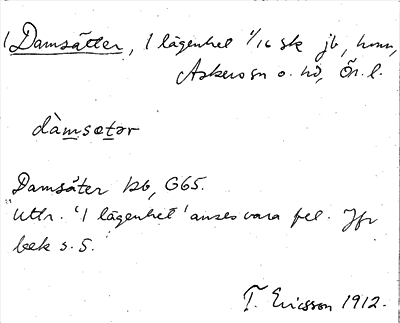 1 Damsätter, 1 lägenhet 1/16 sk jb, hmn,
Askers sn o. hd, Ör. l.
dàmsetər
Damsäter kb, G65.
Uttr. "1 lägenhet" anses vara fel. Jfr
bek s. 5.
T. Ericsson 1912.